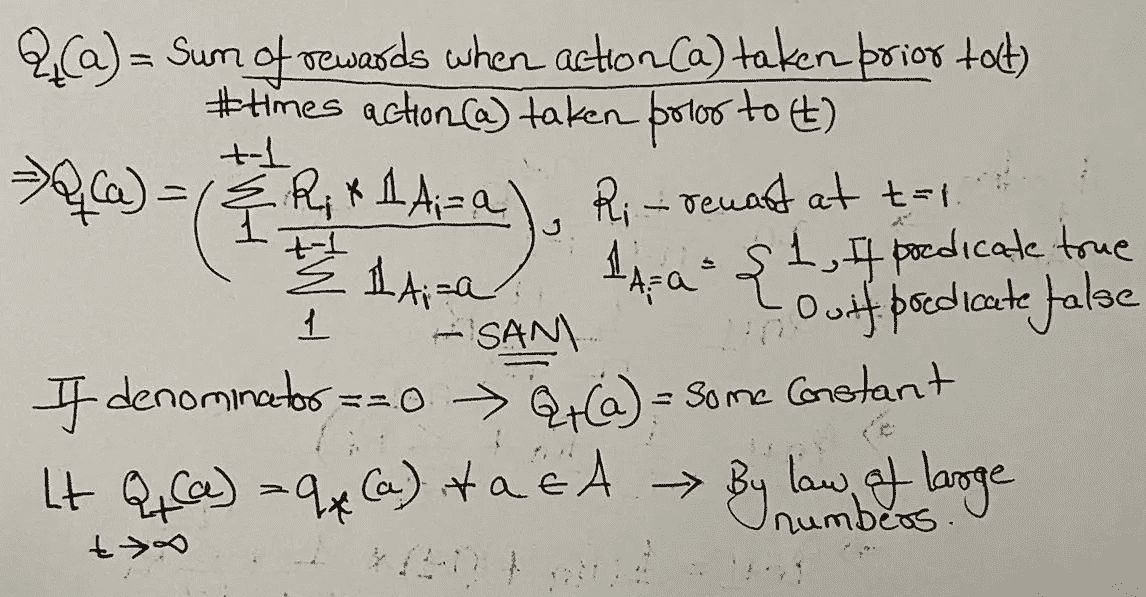 Q_t(a) = Sum of rewards when action(a) taken prior to(t)
#times action(a) taken prior to (t)
⇒ Q_t(a) = ( t-1 Σ 1 R_i * 𝟙 A_i=a / t-1 Σ 1 𝟙 A_i=a ), R_i – reward at t=i
𝟙 A_i=a = { 1, If predicate true
0, if predicate false
– SAM
If denominator ==0 → Q_t(a) = Some Constant
Lt Q_t(a) = q_*(a) ∀ a ∈ A → By law of large
t→∞ numbers.